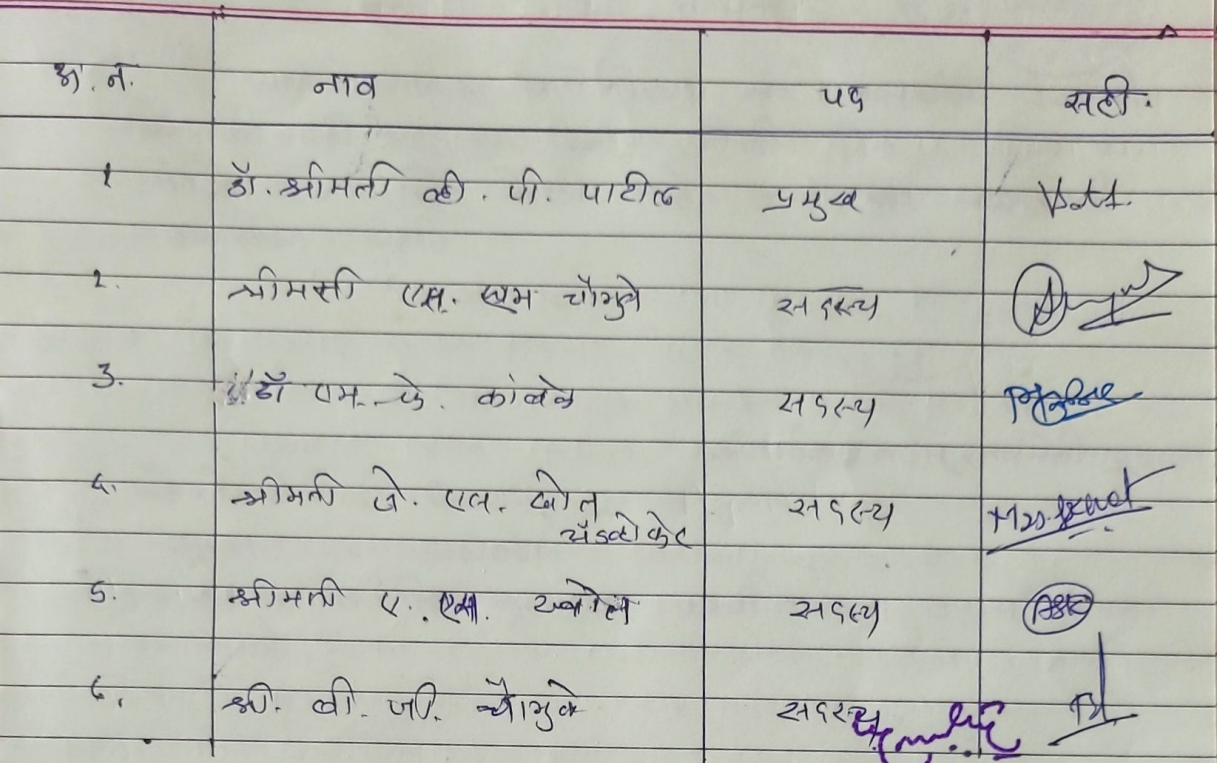 अ. नं. नाव पद सही.
१ डॉ. श्रीमती व्ही. पी. पाटील प्रमुख
२. श्रीमती एस. एम चौगुले सदस्य
३. डॉ एम. के. कांबळे सदस्य
४. श्रीमती जे. एल. खोत सदस्य
अॅडव्होकेट
५. श्रीमती ए. एस. सदस्य
६. श्री. बी. जी. चौगुले सदस्य